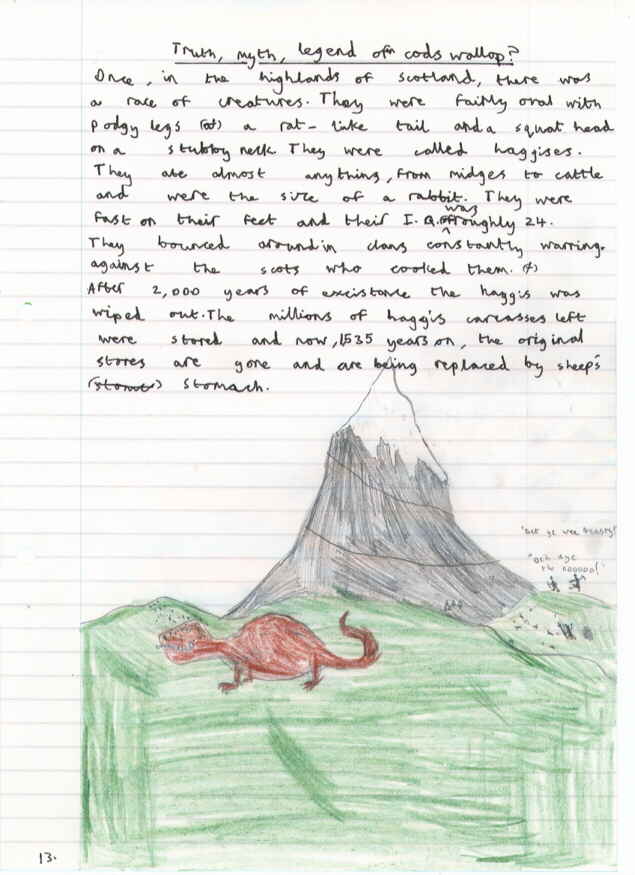 Truth, myth, legend or cods wallop?
Once, in the highlands of scotland, there was
a race of creatures. They were fairly oval with
podgy legs (at) a rat-like tail and a squat head
on a stubby neck They were called haggises.
They ate almost anything, from midges to cattle
and were the size of a rabbit. They were
fast on their feet and their I.Q. was roughly 24.
They bounced around in clans constantly warring
against the scots who cooked them.
After 2,000 years of excistance the haggis was
wiped out. The millions of haggis carcasses left
were stored and now, 1535 years on, the original
stores are gone and are being replaced by sheep's
stomach.
ye wee
"och aye
the nooooo!"
13.